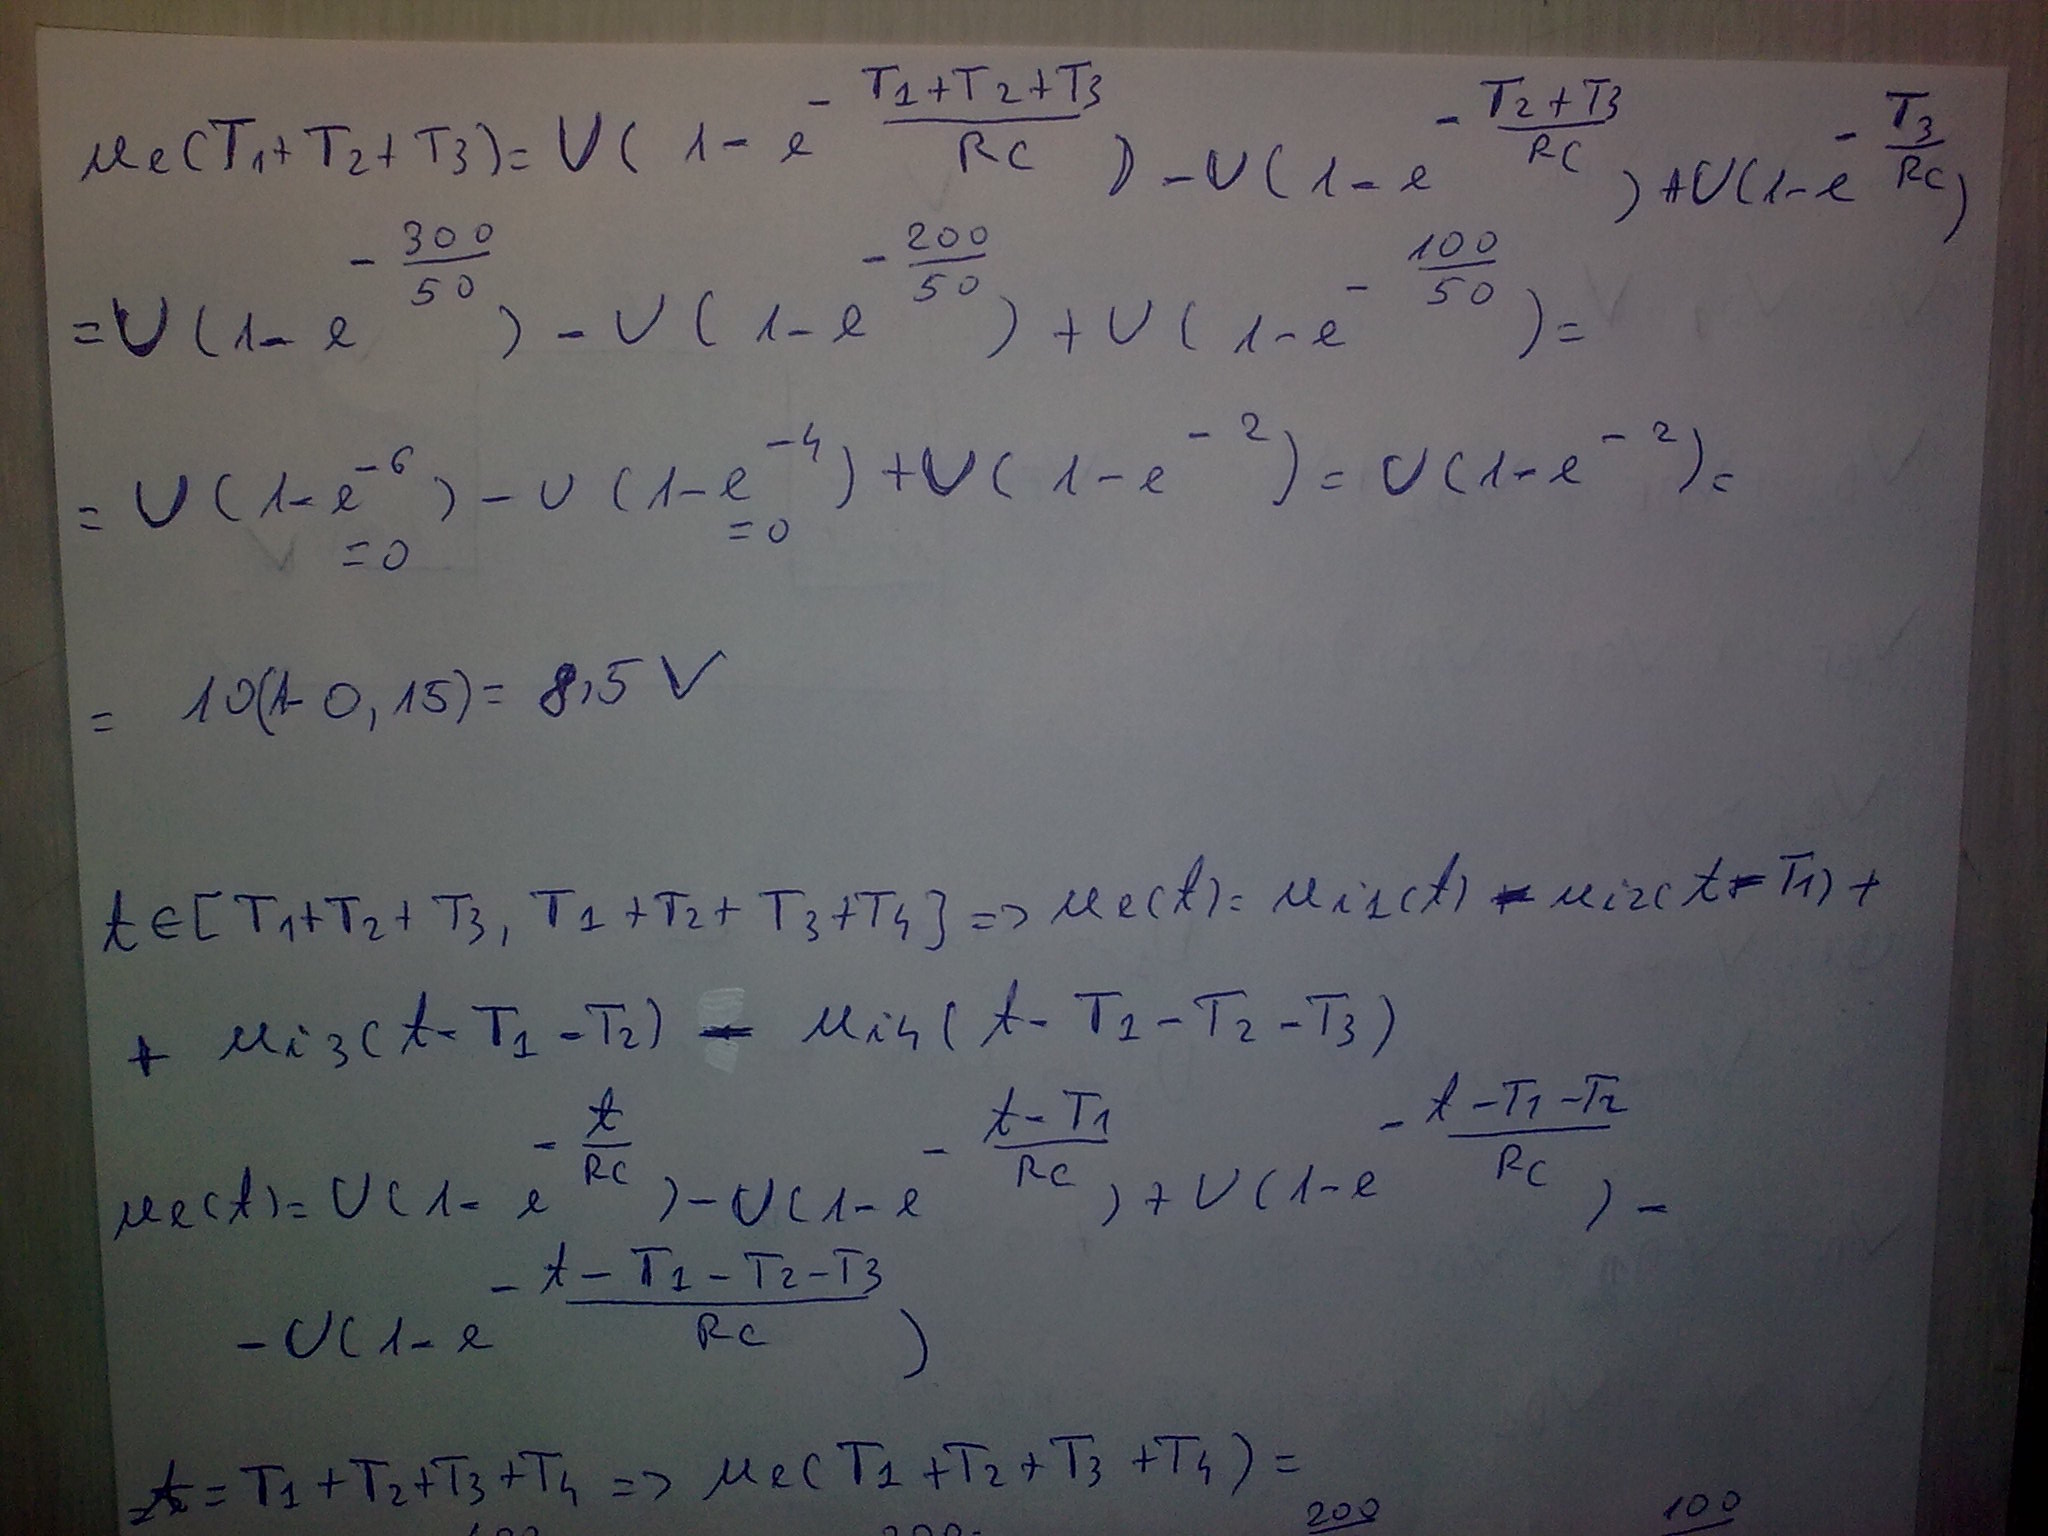 ue(T1+T2+T3)=U(1-e^-(T1+T2+T3)/RC)-U(1-e^-(T2+T3)/RC)+U(1-e^-T3/RC)
=U(1-e^-300/50)-U(1-e^-200/50)+U(1-e^-100/50)=
=U(1-e^-6)-U(1-e^-4)+U(1-e^-2)=U(1-e^-2)=
=0 =0
= 10(1-0,15)=8,5V
t∈[T1+T2+T3,T1+T2+T3+T4]=>ue(t)=ui1(t)-ui2(t-T1)+
+ui3(t-T1-T2)-ui4(t-T1-T2-T3)
ue(t)=U(1-e^-t/RC)-U(1-e^-(t-T1)/RC)+U(1-e^-(t-T1-T2)/RC)-
-U(1-e^-(t-T1-T2-T3)/RC)
t=T1+T2+T3+T4=>ue(T1+T2+T3+T4)=
200 100